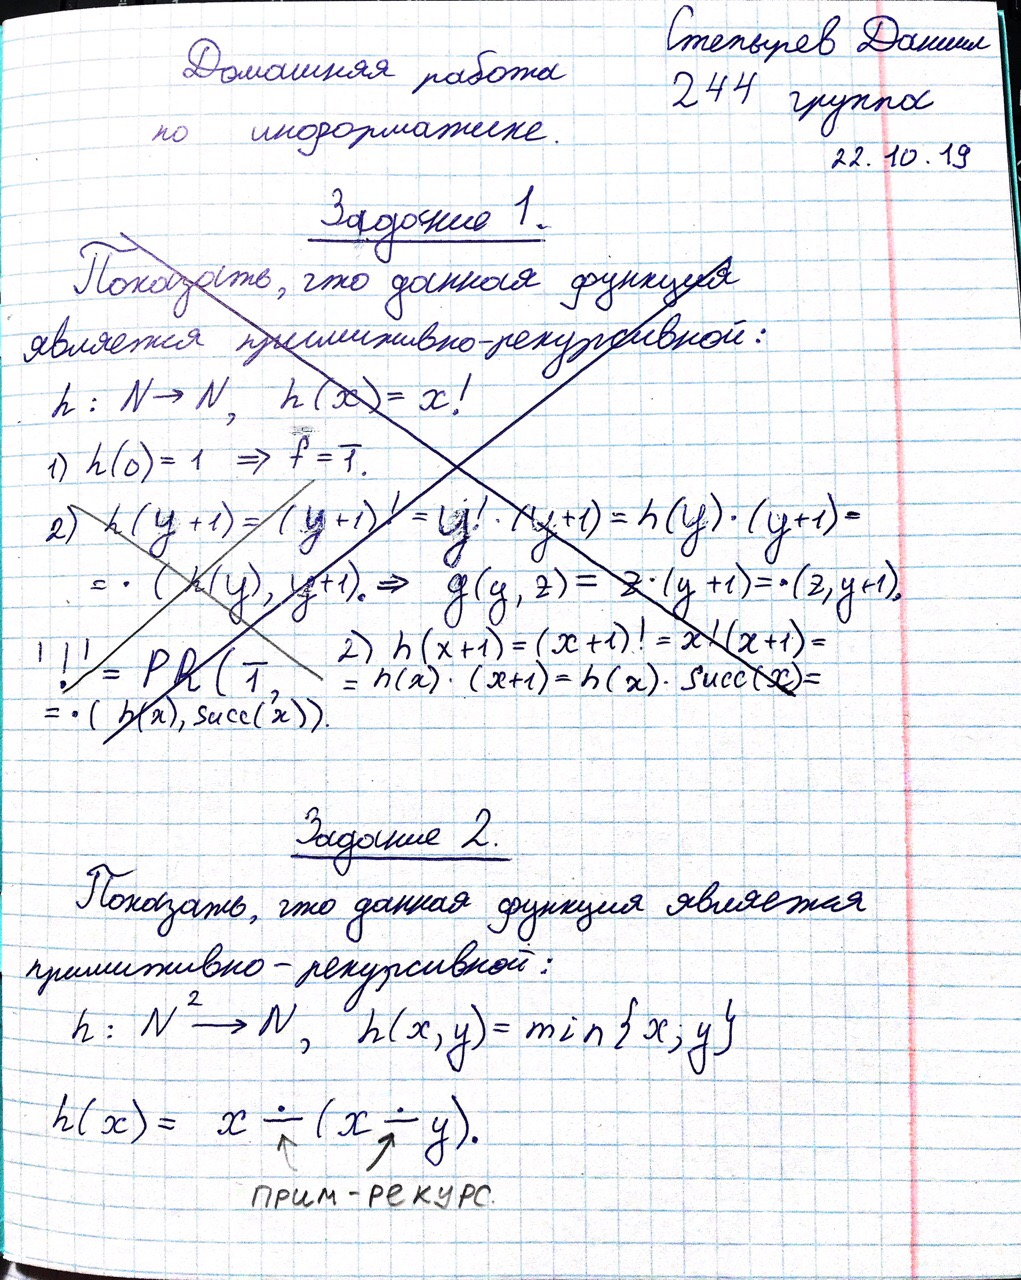 Домашняя работа
по информатике.
Степырев Даниил
244 группа
22.10.19
Задание 1.
Показать, что данная функция
является примитивно-рекурсивной:
h : N → N, h(x) = x!
1) h(0) = 1 ⇒ f = 1̄.
2) h(y+1) = (y+1)! = y! · (y+1) = h(y) · (y+1) =
= · (h(y), y+1). ⇒ g(y, z) = z·(y+1) = ·(z, y+1).
!!! = PR(1̄,
2) h(x+1) = (x+1)! = x!(x+1) =
= h(x) · (x+1) = h(x) · succ(x) =
= ·(h(x), succ(x)).
Задание 2.
Показать, что данная функция является
примитивно-рекурсивной:
h : N² → N, h(x, y) = min{x; y}
h(x) = x ∸ (x ∸ y).
ПРИМ-РЕКУРС.